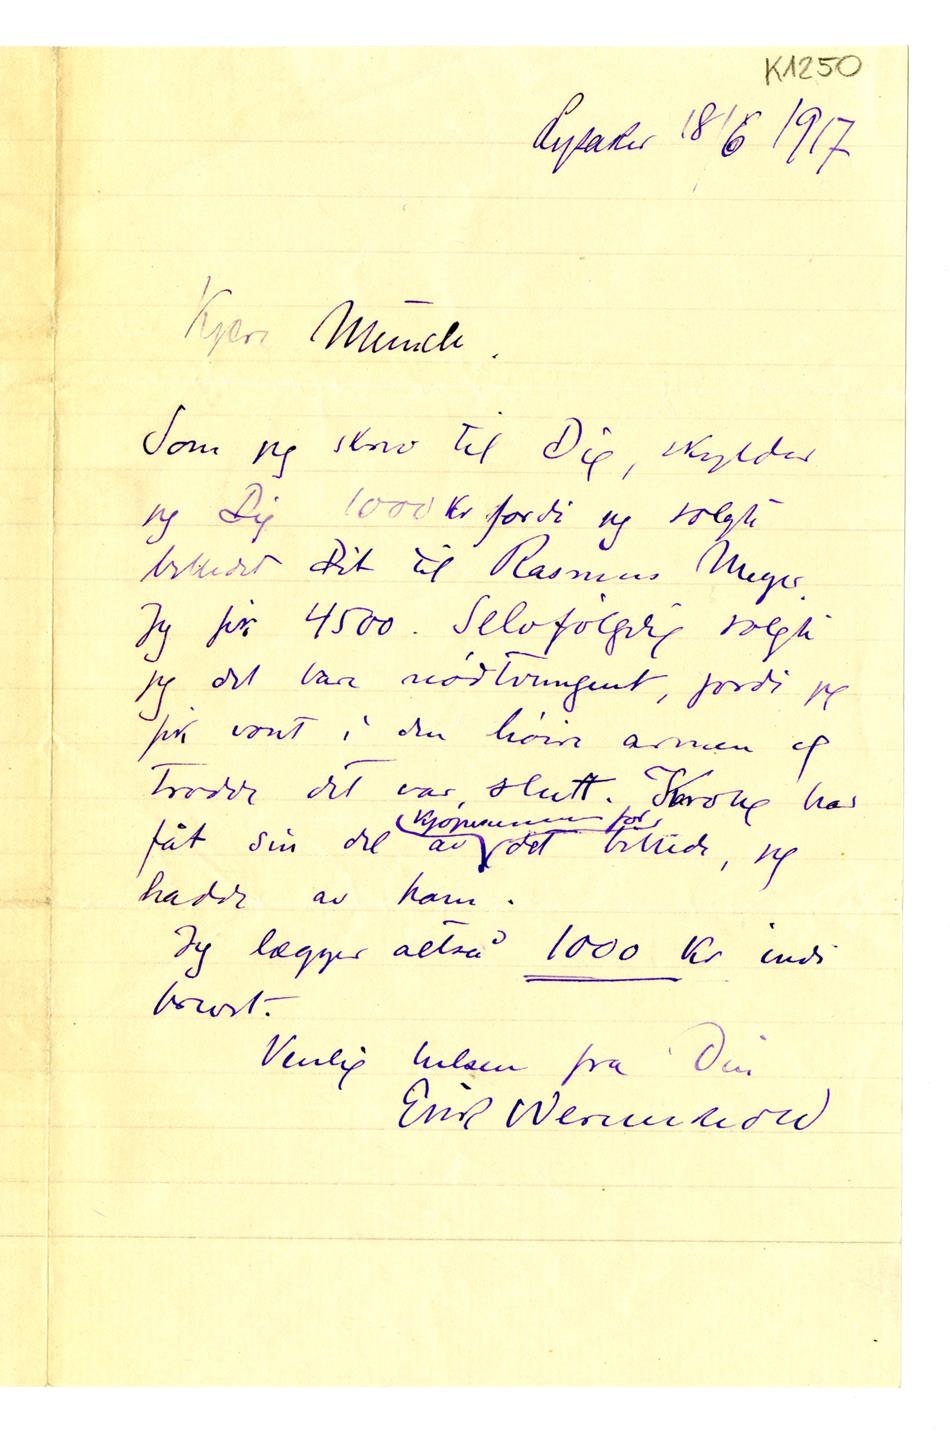 K1250
Lysaker 18/6 1917
Kjære Munch.
Som jeg skrev til Dig, skylder
jeg Dig 1000 Kr fordi jeg solgte
billedet Dit til Rasmus Meyer.
Jeg fik 4500. Selvfølgelig solgte
jeg det bare nødtvungent, fordi jeg
fik vont i den høire armen og
trodde det var slutt. Krohg har
kjøpesummen for
fåt sin del av det billede, jeg
hadde av ham.
Jeg lægger altså 1000 Kr indi
brevet.
Venlig hilsen fra Din
Erik Werenskiold